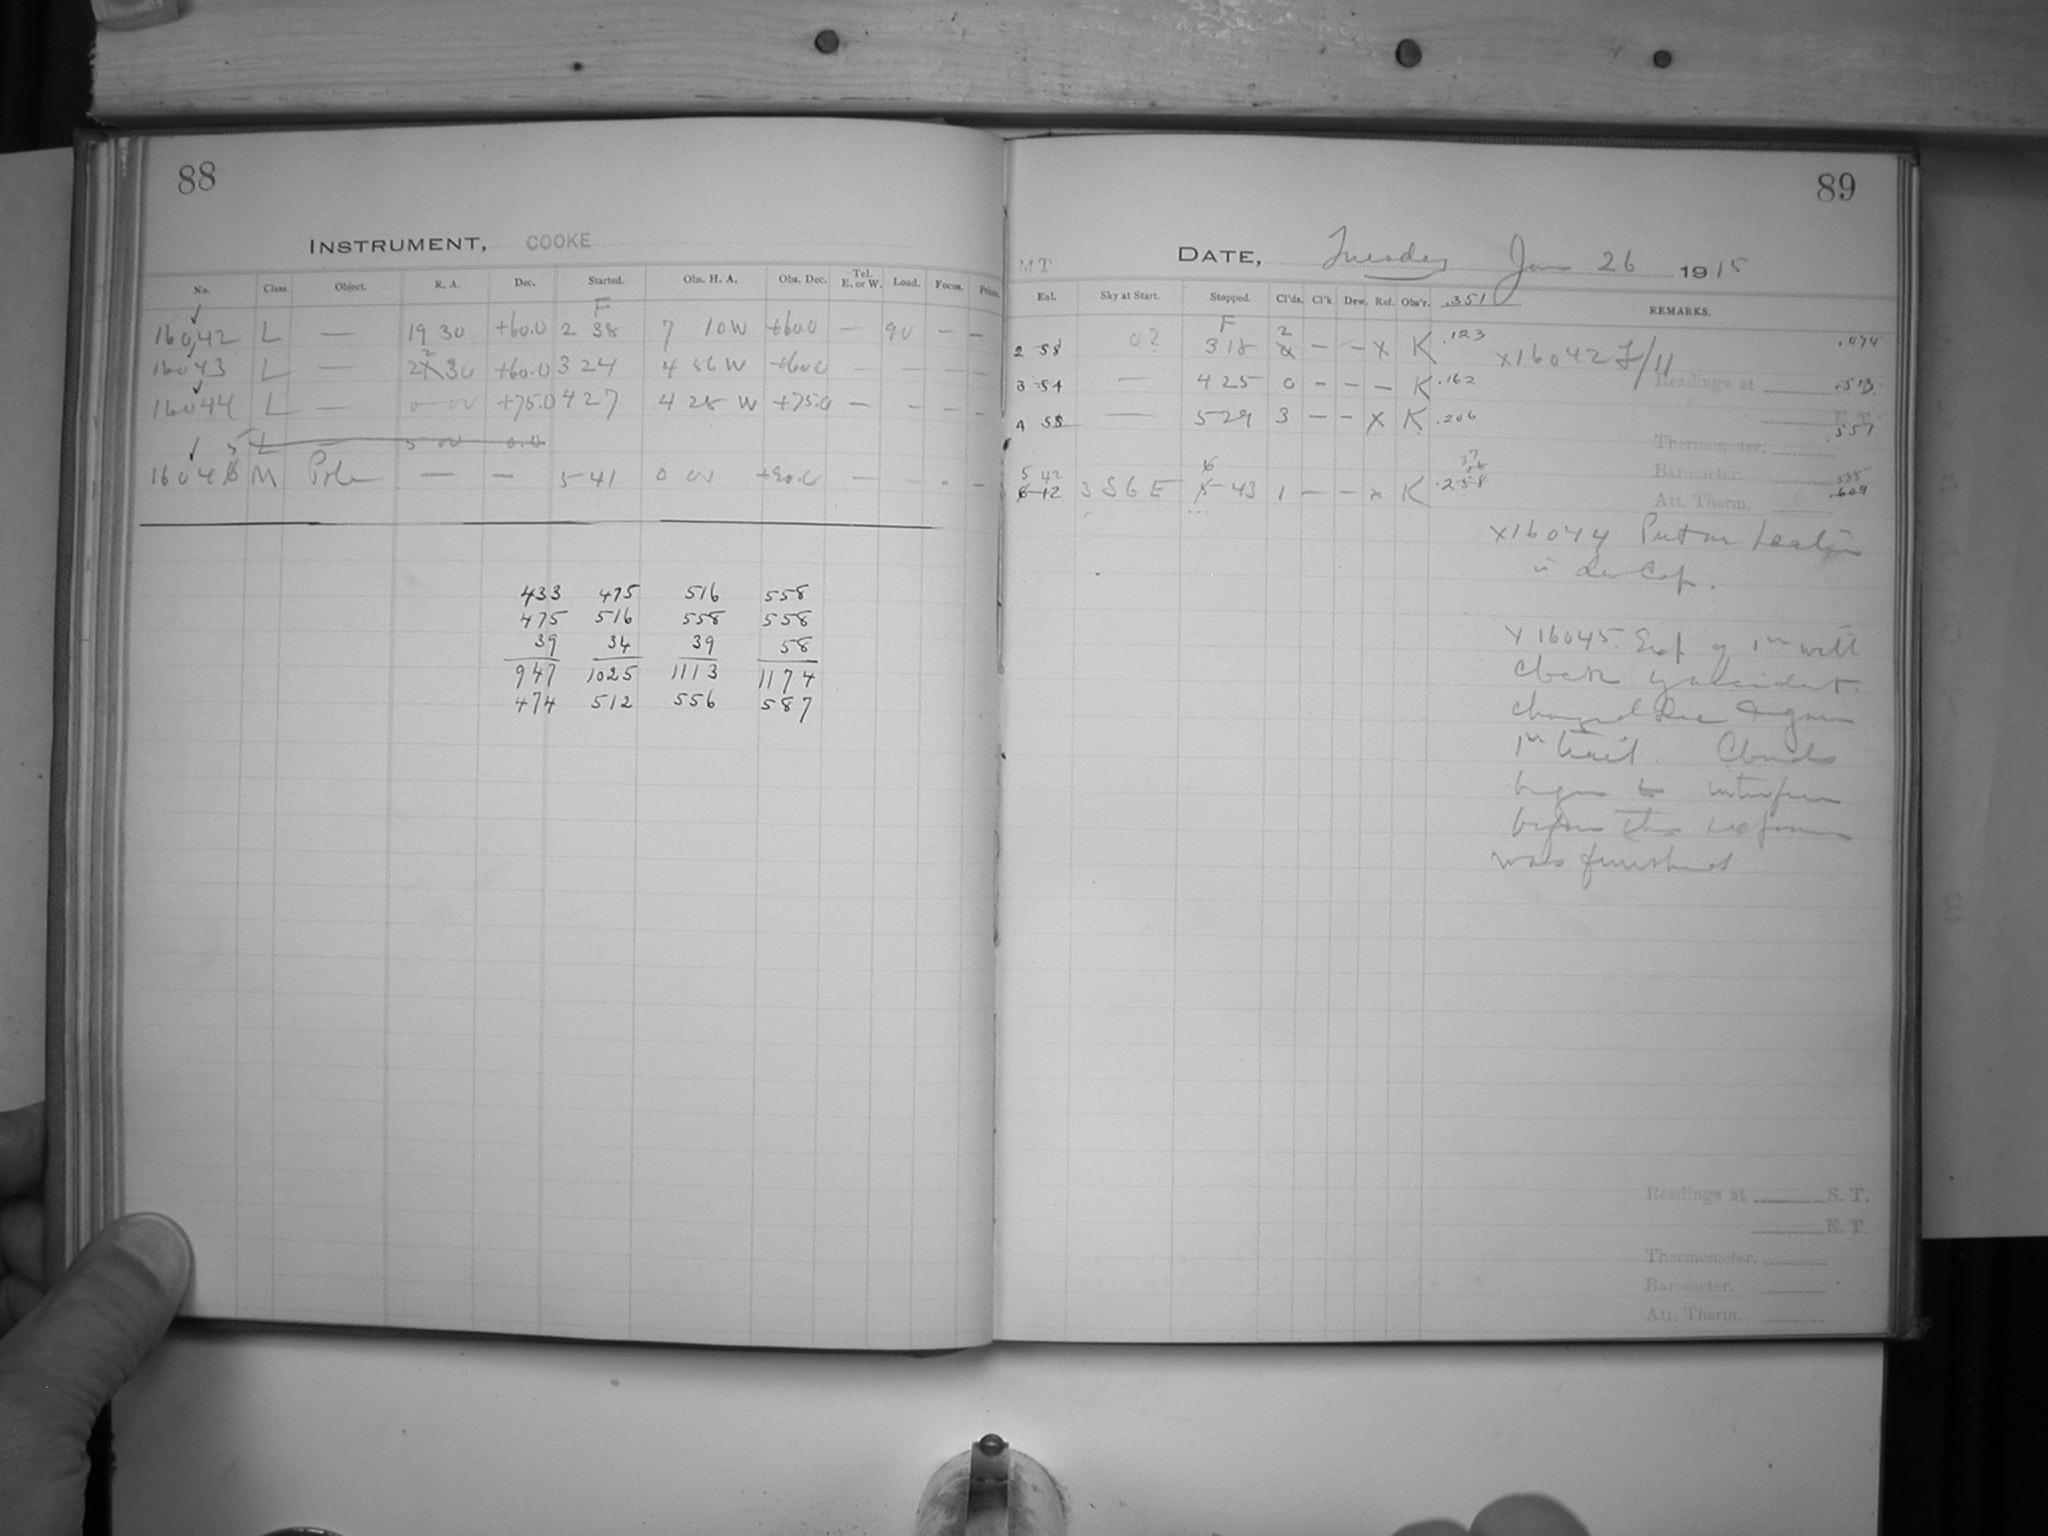 88
INSTRUMENT, COOKE
No. Class. Object. R. A. Dec. Started. Obs. H. A. Obs. Dec. Tel. E. or W. Load. Focus.
F
16042 L — 19 30 +60.0 2 38 7 10 W +60.0 — 90 — —
16043 L — 2 30 +60.0 3 24 4 56 W +60.0 — — — —
16044 L — 0 00 +75.0 4 27 4 28 W +75.0 — — — —
5 L — 5 00 0.0
16045 M Pole — — 5 41 0 00 +90.0 — — - —
433 475 516 558
475 516 558 558
39 34 39 58
947 1025 1113 1174
474 512 556 587
89
MT DATE, Tuesday Jan 26 1915
Enl. Sky at Start. Stopped. Cl'ds. Cl'k Dew. Ref. Obs'r. .351 REMARKS.
F
2 58 0? 3 18 2 — — x K .123 x16042 F/11 .474
3 54 — 4 25 0 — — — K .162 Readings at .513
4 58 — 5 29 3 — — x K .206 E. T. .557
Thermometer.
Barometer.
5 42
6 12 3 S 6 E 6 43 1 — — x K .258 .609
Att. Therm.
x16044 Put on heater
in dew cap.
x16045. Exp of 1m with
clock by accident.
changed Dec & gave
1m trail. Clouds
began to interfere
before the exposure
was finished
Readings at S. T.
E. T.
Thermometer.
Barometer.
Att. Therm.